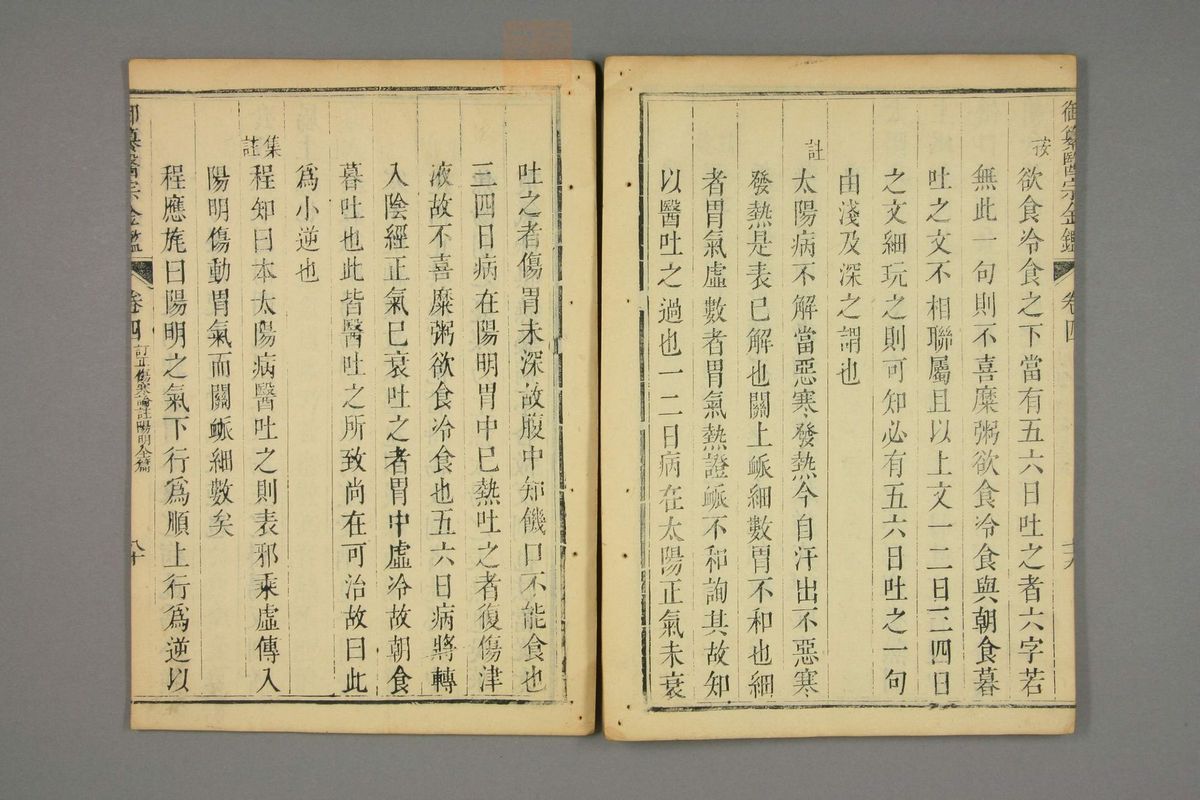 御纂醫宗金鑑 卷四
按
欲食冷食之下當有五六日吐之者六字若
無此一句則不喜糜粥欲食冷食與朝食暮
吐之文不相聯屬且以上文一二日三四日
之文細玩之則可知必有五六日吐之一句
由淺及深之謂也
註
太陽病不解當惡寒發熱今自汗出不惡寒
發熱是表已解也關上脈細數胃不和也細
者胃氣虛數者胃氣熱證脈不和詢其故知
以醫吐之過也一二日病在太陽正氣未衰
吐之者傷胃未深故腹中知饑口不能食也
三四日病在陽明胃中已熱吐之者復傷津
液故不喜糜粥欲食冷食也五六日病將轉
入陰經正氣已衰吐之者胃中虛冷故朝食
暮吐也此皆醫吐之所致尚在可治故曰此
爲小逆也
集註
程知曰本太陽病醫吐之則表邪乘虛傳入
陽明傷動胃氣而關脈細數矣
程應旄曰陽明之氣下行爲順上行爲逆以
御纂醫宗金鑑 卷四 訂正傷寒論註陽明全篇